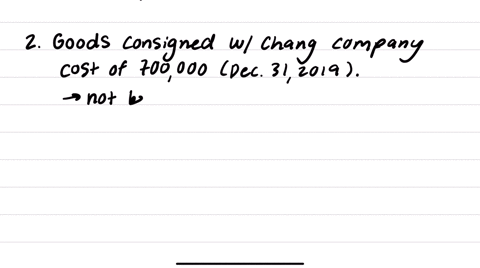 2. Goods consigned w/ Chang company
cost of 700,000 (Dec. 31, 2019).
→ not